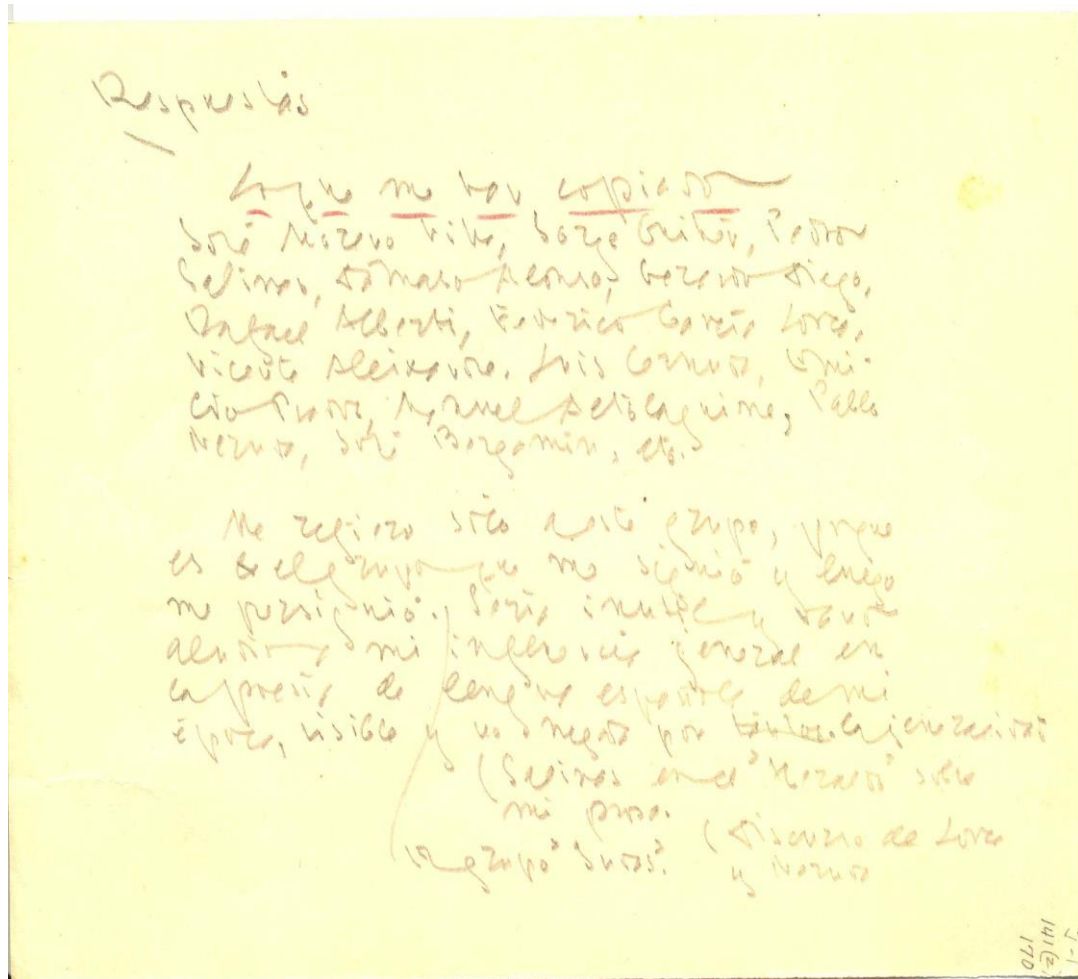 Respuestas
Lo que me han copiado
José Moreno Villa, Jorge Guillén, Pedro
Salinas, Dámaso Alonso, Gerardo Diego,
Rafael Alberti, Federico García Lorca,
Vicente Aleixandre, Luis Cernuda, Emi-
lio Prados, Manuel Altolaguirre, Pablo
Neruda, José Bergamín, etc.
Me refiero sólo a este grupo, porque
es el grupo que me siguió y luego
me persiguió. Sería inutil y
aludir a mi influencia jeneral en
la poesía de lengua española de mi
época, visible y no negada por la jeneración
(Salinas en el "Heraldo" sobre
mi prosa.
(Discurso de Lorca
El grupo "Judas". y Neruda
J-1
141(2)
170